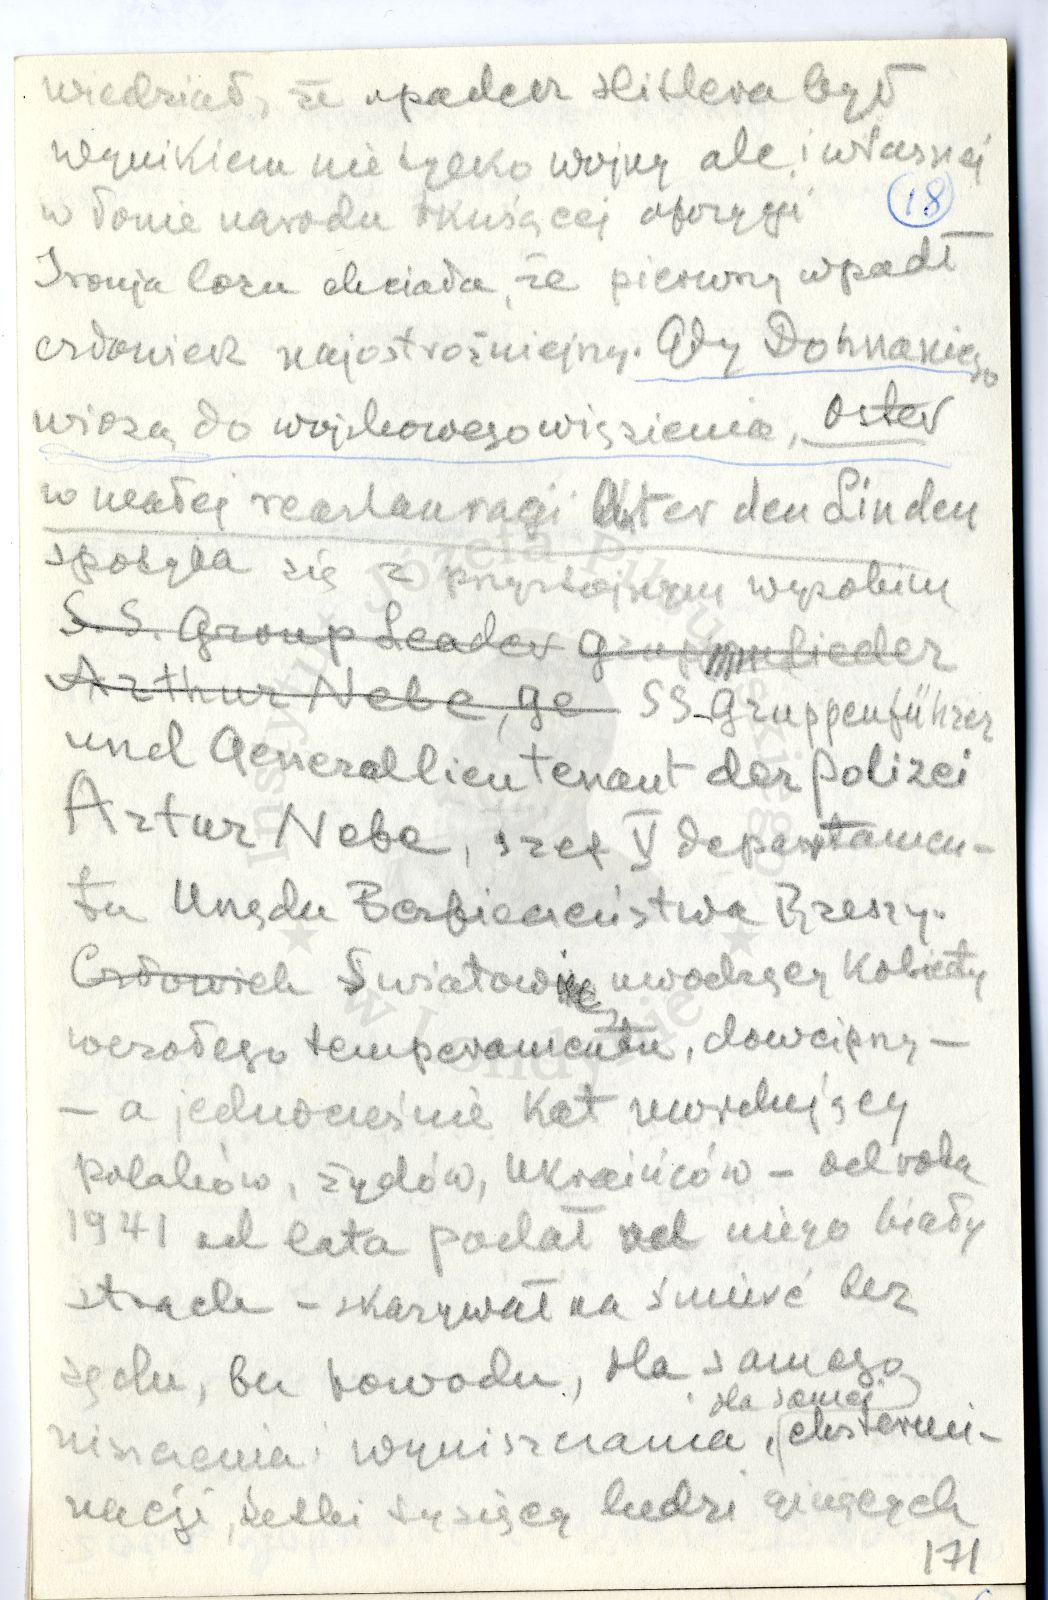 wiedział, że upadek Hitlera był
wynikiem nie tylko wojny ale i własnej
w łonie narodu opozycji
18
Ironja losu chciała, że pierwszy wpadł
człowiek najostrożniejszy. Gdy Dohnaniego
wiozą do wojskowego więzienia, Oster
w małej restauracji Unter den Linden
spotyka się z przystojnym wysokim
S.S. Group Leader
Arthur Nebe, ge SS-Gruppenführer
und Generallieutenant der Polizei
Artur Nebe, szef V departamen-
tu Urzędu Bezpieczeństwa Rzeszy.
Człowiek Światowiec, uwodzący kobiety
wesołego temperamentu, dowcipny -
- a jednocześnie kat mordujący
polaków, żydów, Ukraińców - od roku
1941 od lata padał od niego biały
strach - skazywał na śmierć bez
sądu, bez powodu, dla samego
niszczenia i wyniszczania, dla samej ekstermi-
nacji, setki tysięcy ludzi ginących
171
Instytut Józefa Piłsudskiego
w Londynie